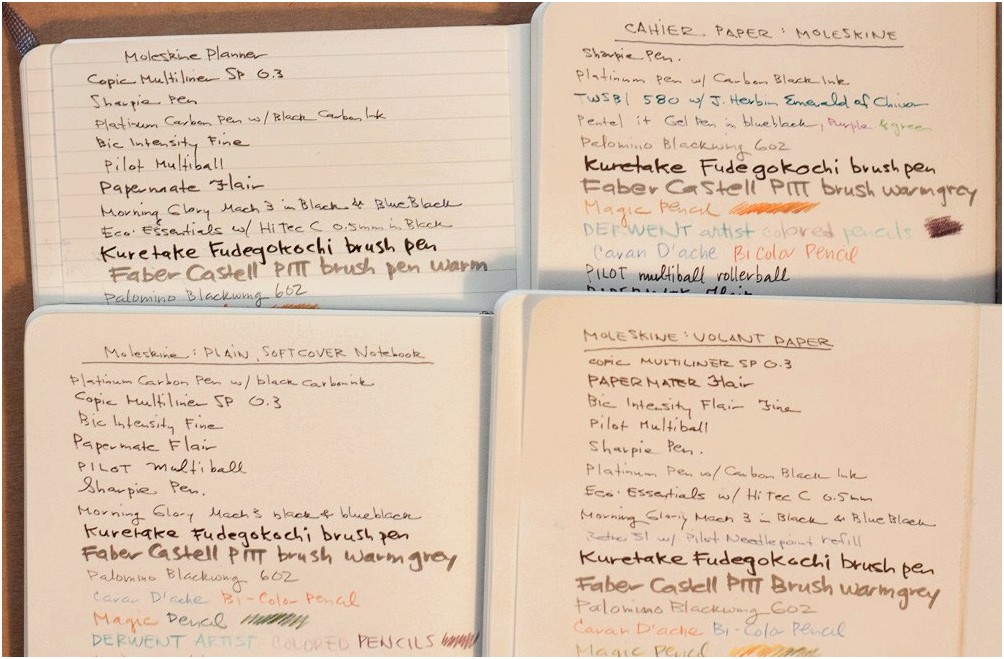 Moleskine Planner
Copic Multiliner SP 0.3
Sharpie Pen
Platinum Carbon Pen w/ Black Carbon Ink
Bic Intensity Fine
Pilot Multiball
Papermate Flair
Morning Glory Mach 3 in Black & BlueBlack
Eco-Essentials w/ HiTec C 0.5mm in Black
Kuretake Fudegokochi brush pen
Faber Castell PITT brush pen warm
Palomino Blackwing 602
CAHIER PAPER : MOLESKINE
Sharpie Pen.
Platinum Pen w/ Carbon Black Ink
TWSBI 580 w/ J. Herbin Emerald of Chivor
Pentel it Gel Pen in blueblack, Purple & green
Palomino Blackwing 602
Kuretake Fudegokochi brush pen
Faber Castell PITT brush warmgrey
Magic Pencil
DERWENT artist colored pencils
Caran D'ache BiColor Pencil
PILOT multiball rollerball
Moleskine : PLAIN, SOFTCOVER Notebook
Platinum Carbon Pen w/ black carbon ink
Copic Multiliner SP 0.3
Bic Intensity Fine
Papermate Flair
PILOT multiball
Sharpie Pen.
Morning Glory Mach 3 black & blueblack
Kuretake Fudegokochi brush pen
Faber Castell PITT brush warmgrey
Palomino Blackwing 602
Caran D'ache Bi-Color Pencil
Magic Pencil
DERWENT ARTIST COLORED PENCILS
MOLESKINE : VOLANT PAPER
COPIC MULTILINER SP 0.3
PAPERMATER Flair
Bic Intensity Flair Fine
Pilot Multiball
Sharpie Pen.
Platinum Pen w/ Carbon Black Ink
Eco-Essentials w/ HiTec C 0.5mm
Morning Glory Mach 3 in Black & BlueBlack
Retro 51 w/ Pilot Needlepoint refill
Kuretake Fudegokochi brush pen
Faber Castell PITT Brush warmgrey
Palomino Blackwing 602
Caran D'ache Bi-Color Pencil
Magic Pencil